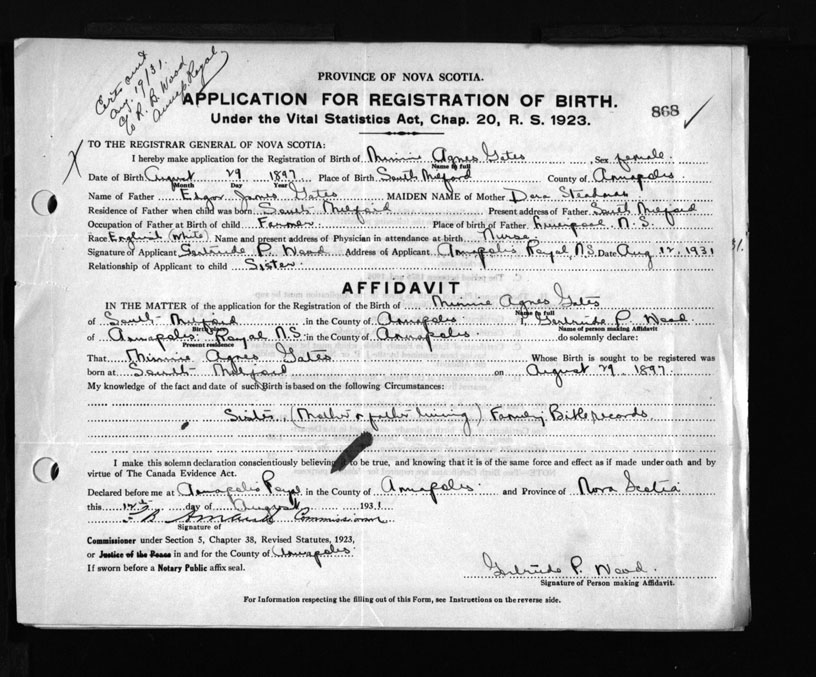 Certs out
Aug. 19/31.
c/o R. B. Wood
Annap Royal
PROVINCE OF NOVA SCOTIA.
APPLICATION FOR REGISTRATION OF BIRTH.
868
Under the Vital Statistics Act, Chap. 20, R. S. 1923.
TO THE REGISTRAR GENERAL OF NOVA SCOTIA:
I hereby make application for the Registration of Birth of Minnie Agnes Gates, Sex female.
Name in full
Date of Birth August 29 1897. Place of Birth South Milford County of Annapolis
Month Day Year
Name of Father Edgar James Gates MAIDEN NAME of Mother Dora
Residence of Father when child was born South Milford Present address of Father South Milford
Occupation of Father at Birth of child Farmer Place of birth of Father Liverpool N.S.
Race English (White). Name and present address of Physician in attendance at birth Nurse
Signature of Applicant Gertrude P. Wood Address of Applicant Annapolis Royal, N.S. Date Aug 12, 1931
Relationship of Applicant to child Sister
AFFIDAVIT
IN THE MATTER of the application for the Registration of the Birth of Minnie Agnes Gates
Name in full
of South Milford in the County of Annapolis I, Gertrude P. Wood
Birthplace Name of person making Affidavit
of Annapolis Royal N.S. in the County of Annapolis do solemnly declare:
Present residence
That Minnie Agnes Gates Whose Birth is sought to be registered was
born at South Milford on August 29 1897.
My knowledge of the fact and date of such Birth is based on the following Circumstances:
Sister, (Mother or father living) Family Bible records
I make this solemn declaration conscientiously believing it to be true, and knowing that it is of the same force and effect as if made under oath and by
virtue of The Canada Evidence Act.
Declared before me at Annapolis Royal in the County of Annapolis and Province of Nova Scotia
this 12th day of August 1931
Commissioner
Signature of
Commissioner under Section 5, Chapter 38, Revised Statutes, 1923,
or Justice of the Peace in and for the County of Annapolis
If sworn before a Notary Public affix seal.
Gertrude P. Wood.
Signature of Person making Affidavit.
For Information respecting the filling out of this Form, see Instructions on the reverse side.